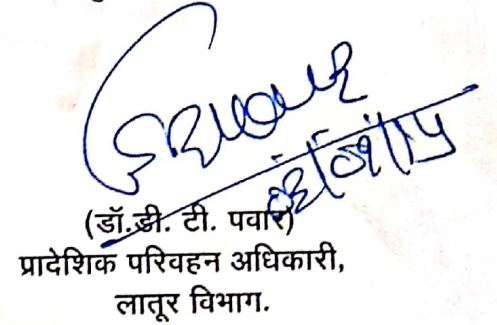 (डॉ.डी. टी. पवार)
प्रादेशिक परिवहन अधिकारी,
लातूर विभाग.